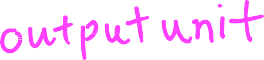 output unit